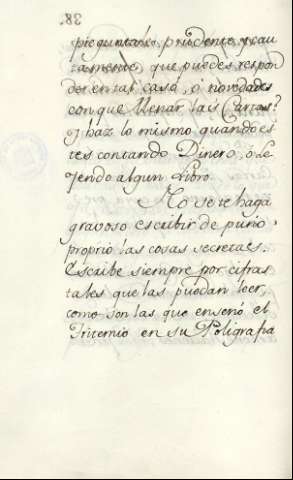 38.
preguntalo, prudente, y cau
tamente, que puedes respon
der en tal caso, ó novedades
con que llenar las Cartas?
y haz lo mismo quando es
tes contando Dinero, o Le
yendo algun Libro.
No se te haga
gravoso escribir de puño
proprio las cosas secretas.
Escribe siempre por cifras
tales que las puedan leer,
como son las que enseñó el
Tritemio en su Poligrafia